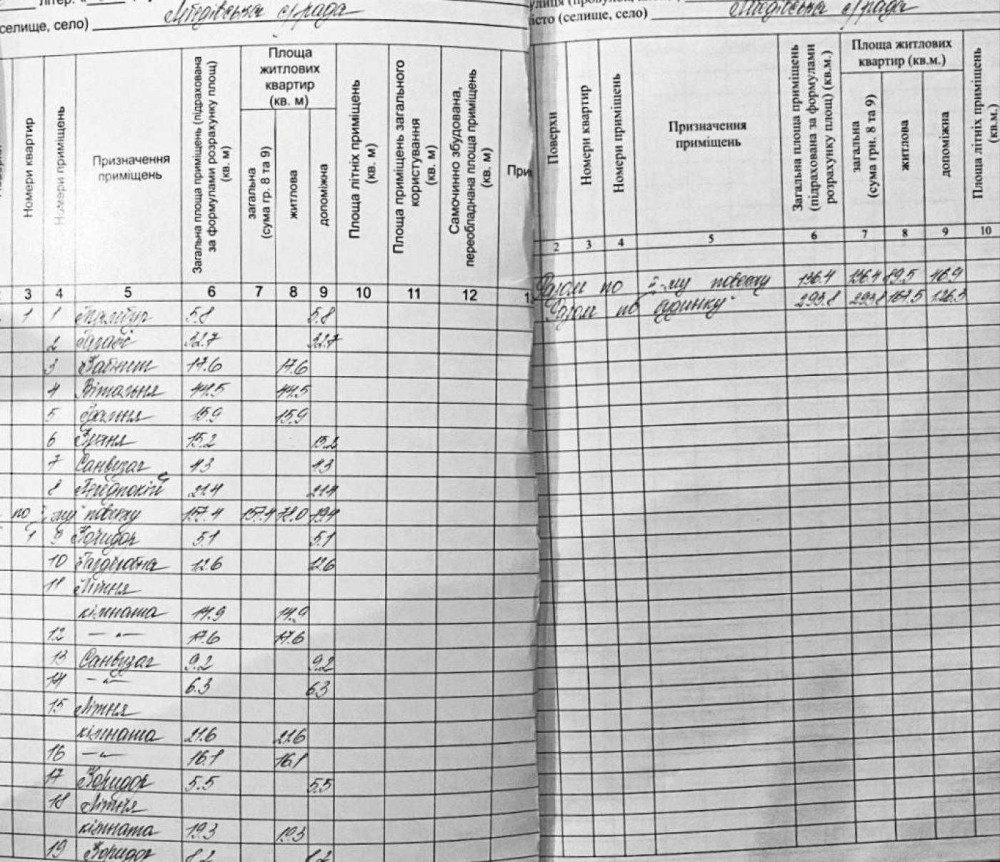 літер.
(селище, село) с/рада
Номери квартир
Номери приміщень
Призначення
приміщень
Загальна площа приміщень (підрахована
за формулами розрахунку площ)
(кв. м)
Площа
житлових
квартир
(кв. м)
загальна
(сума гр. 8 та 9)
житлова
допоміжна
Площа літніх приміщень
(кв. м)
Площа приміщень загального
користування
(кв. м)
Самочинно збудована,
переобладнана площа приміщень
(кв. м)
При
3 4 5 6 7 8 9 10 11 12 1
1 1 Тамбур 5.8 5.8
2 Гараж 32.7 32.7
3 Кабінет 17.6 17.6
4 Вітальня 44.5 44.5
5 Їдальня 15.9 15.9
6 Кухня 15.2 15.2
7 Санвузол 4.3 4.3
8 Передпокій 21.4 21.4
по І-му поверху 157.4 157.4 78.0 79.4
1 9 Коридор 5.1 5.1
10 Гардеробна 12.6 12.6
11 Житня
кімната 14.9 14.9
12 — " — 17.6 17.6
13 Санвузол 9.2 9.2
14 — " — 6.3 6.3
15 Житня
кімната 21.6 21.6
16 — " — 16.1 16.1
17 Коридор 5.5 5.5
18 Житня
кімната 19.3 19.3
19 Коридор 8.2 8.2
місто (селище, село) с/рада
Поверхи
Номери квартир
Номери приміщень
Призначення
приміщень
Загальна площа приміщень
(підрахована за формулами
розрахунку площ) (кв.м.)
Площа житлових
квартир (кв.м.)
загальна
(сума грн. 8 та 9)
житлова
допоміжна
Площа літніх приміщень
(кв.м.)
2 3 4 5 6 7 8 9 10
Разом по ІІ-му поверху 136.4 136.4 89.5 46.9
Разом по будинку 293.8 293.8 167.5 126.3